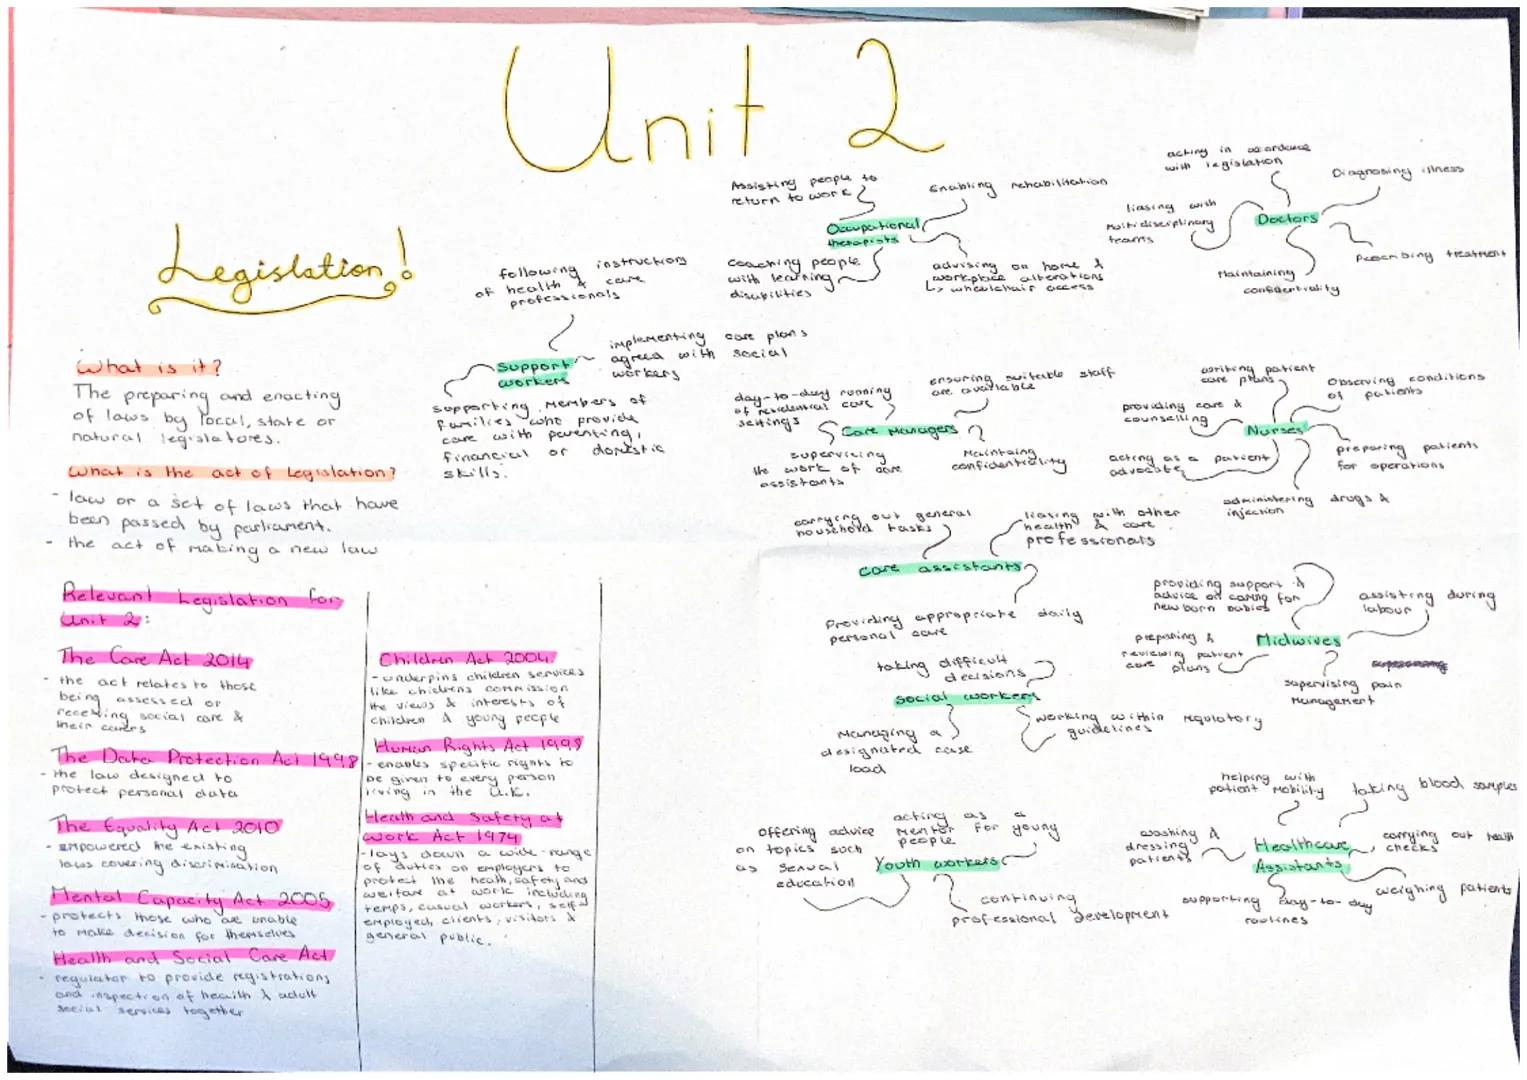 Unit 2
Legislation!
What is it?
The preparing and enacting
of laws by local, state or
natural legislatores.
What is the act of Legislation?
- law or a set of laws that have
been passed by parliament.
- the act of making a new law
Relevant Legislation for
Unit 2:
The Care Act 2014
- the act relates to those
being assessed or
receiving social care &
their carers
The Data Protection Act 1998
- the law designed to
protect personal data
The Equality Act 2010
- empowered the existing
laws covering discrimination
Mental Capacity Act 2005
- protects those who are unable
to make decision for themselves
Health and Social Care Act
- regulator to provide registrations
and inspection of health & adult
social services together
Children Act 2004
- underpins children services
like childrens commission
the views & interests of
children & young people
Human Rights Act 1998
- enables specific rights to
be given to every person
living in the U.K.
Health and Safety at
Work Act 1974
- lays down a wide-range
of duties on employers to
protect the health, safety and
welfare at work including
temps, casual workers, self
employed, clients, visitors &
general public.
following instructions
of health & care
professionals
Support
workers
implementing care plans
agreed with social
workers
supporting members of
families who provide
care with parenting,
financial or domestic
skills.
Assisting people to
return to work
Enabling rehabilitation
Occupational
therapists
Coaching people
with learning
disabilities
advising on home &
workplace alterations
↳ wheelchair access
acting in accordance
with legislation
Diagnosing illness
liasing with
multidisciplinary
teams
Doctors
Prescribing treatment
Maintaining
confidentiality
day-to-day running
of residential care
settings
ensuring suitable staff
are available
Care Managers
supervising
the work of care
assistants
Maintaing
confidentiality
writing patient
care plans
Observing conditions
of patients
providing care &
counselling
Nurses
acting as a patient
advocate
preparing patients
for operations
administering drugs &
injection
carrying out general
household tasks
liasing with other
health & care
professionals
Care assistants
Providing appropriate daily
personal care
providing support &
advice on caring for
newborn babies
assisting during
labour
Midwives
preparing &
reviewing patient
care plans
supervising pain
management
taking difficult
decisions
Social workers
Managing a
designated case
load
working within regulatory
guidelines
acting as a
mentor for young
people
Offering advice
on topics such
as sexual
education
Youth workers
continuing
professional development
helping with
patient mobility
taking blood samples
washing &
dressing
patients
Healthcare
Assistants
carrying out health
checks
weighing patients
supporting day-to-day
routines